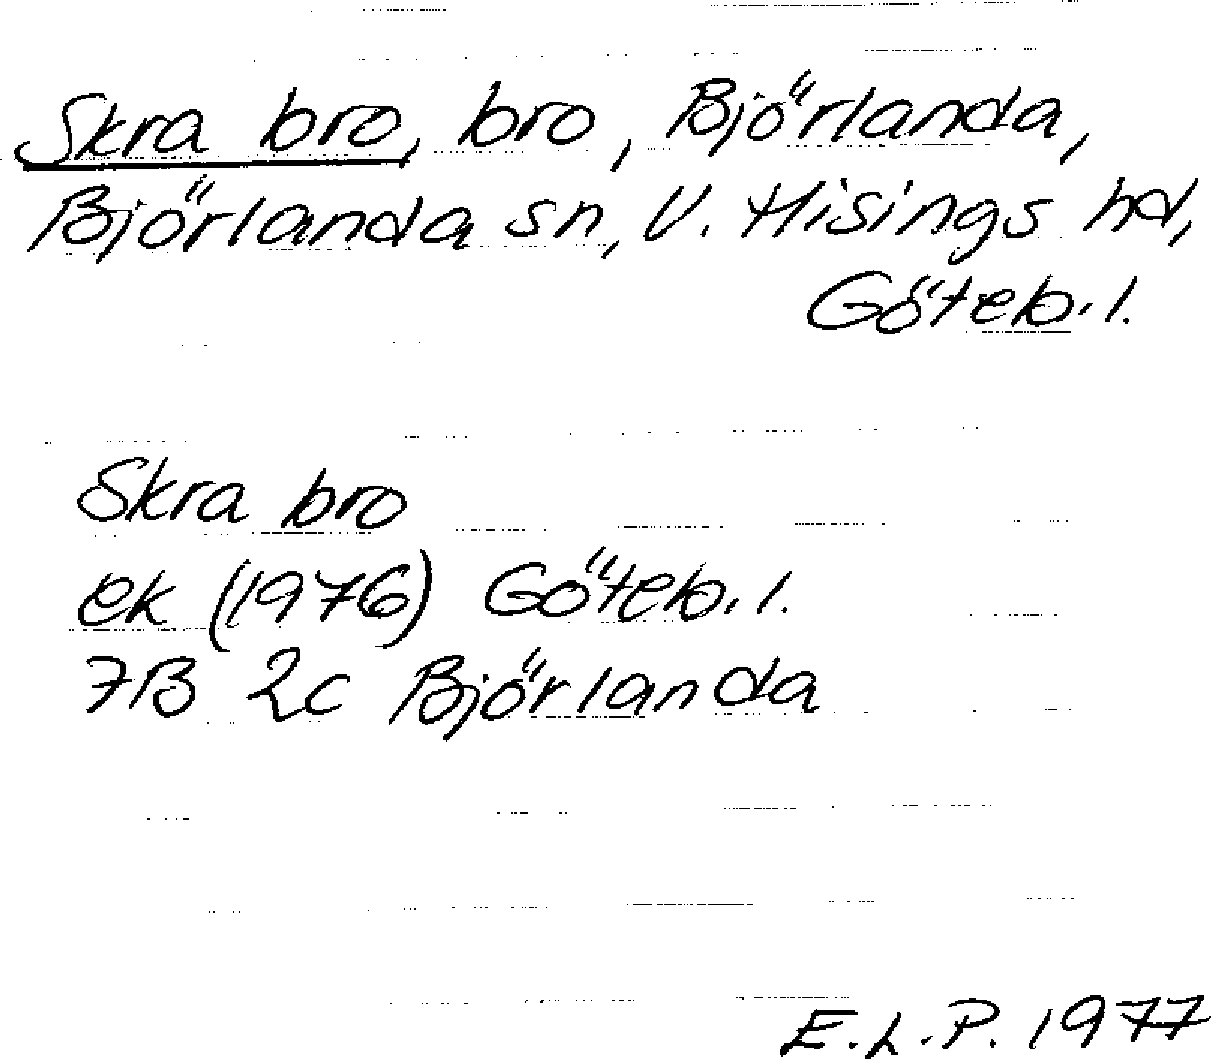 Skra bro, bro, Björlanda,
Björlanda sn, V. Hisings hd,
Göteb. l.
Skra bro
ek (1976) Göteb. l.
7B 2c Björlanda
E.L.P. 1977